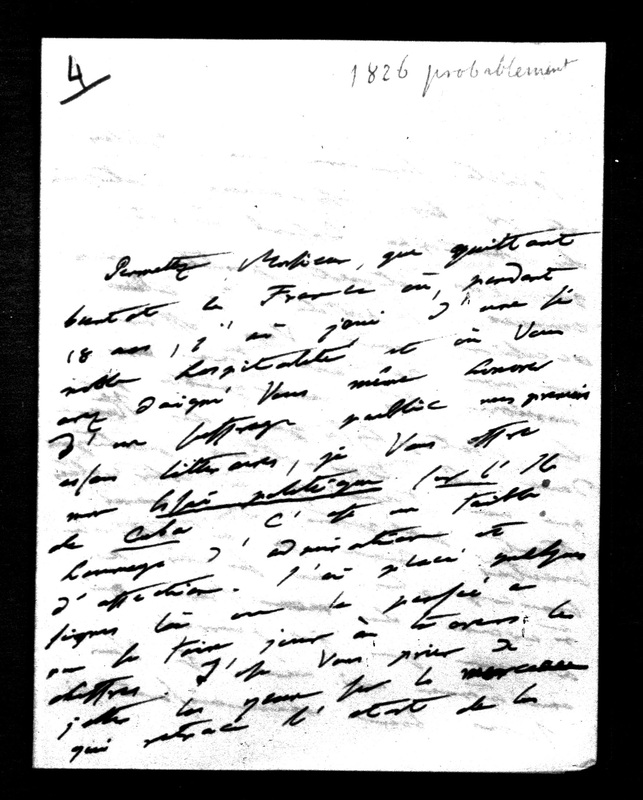 4
1826 probablement
Permettez Monsieur, que quittant
bientot la France où, pendant
18 ans, j'ai joui d'une si
noble hospitalité et où Vous
avez daigné Vous même honorer
d'un suffrage public mes premiers
essais litteraires, je Vous offre
mon Essai politique sur l'Ile
de Cuba. C'est un faible
hommage d'admiration et
d'affection. J'ai placé quelques
lignes là où la pensée a
pu se faire jour à travers les
chiffres. J'ose Vous prier de
jetter les yeux sur le morceau
qui retrace l'etat de la